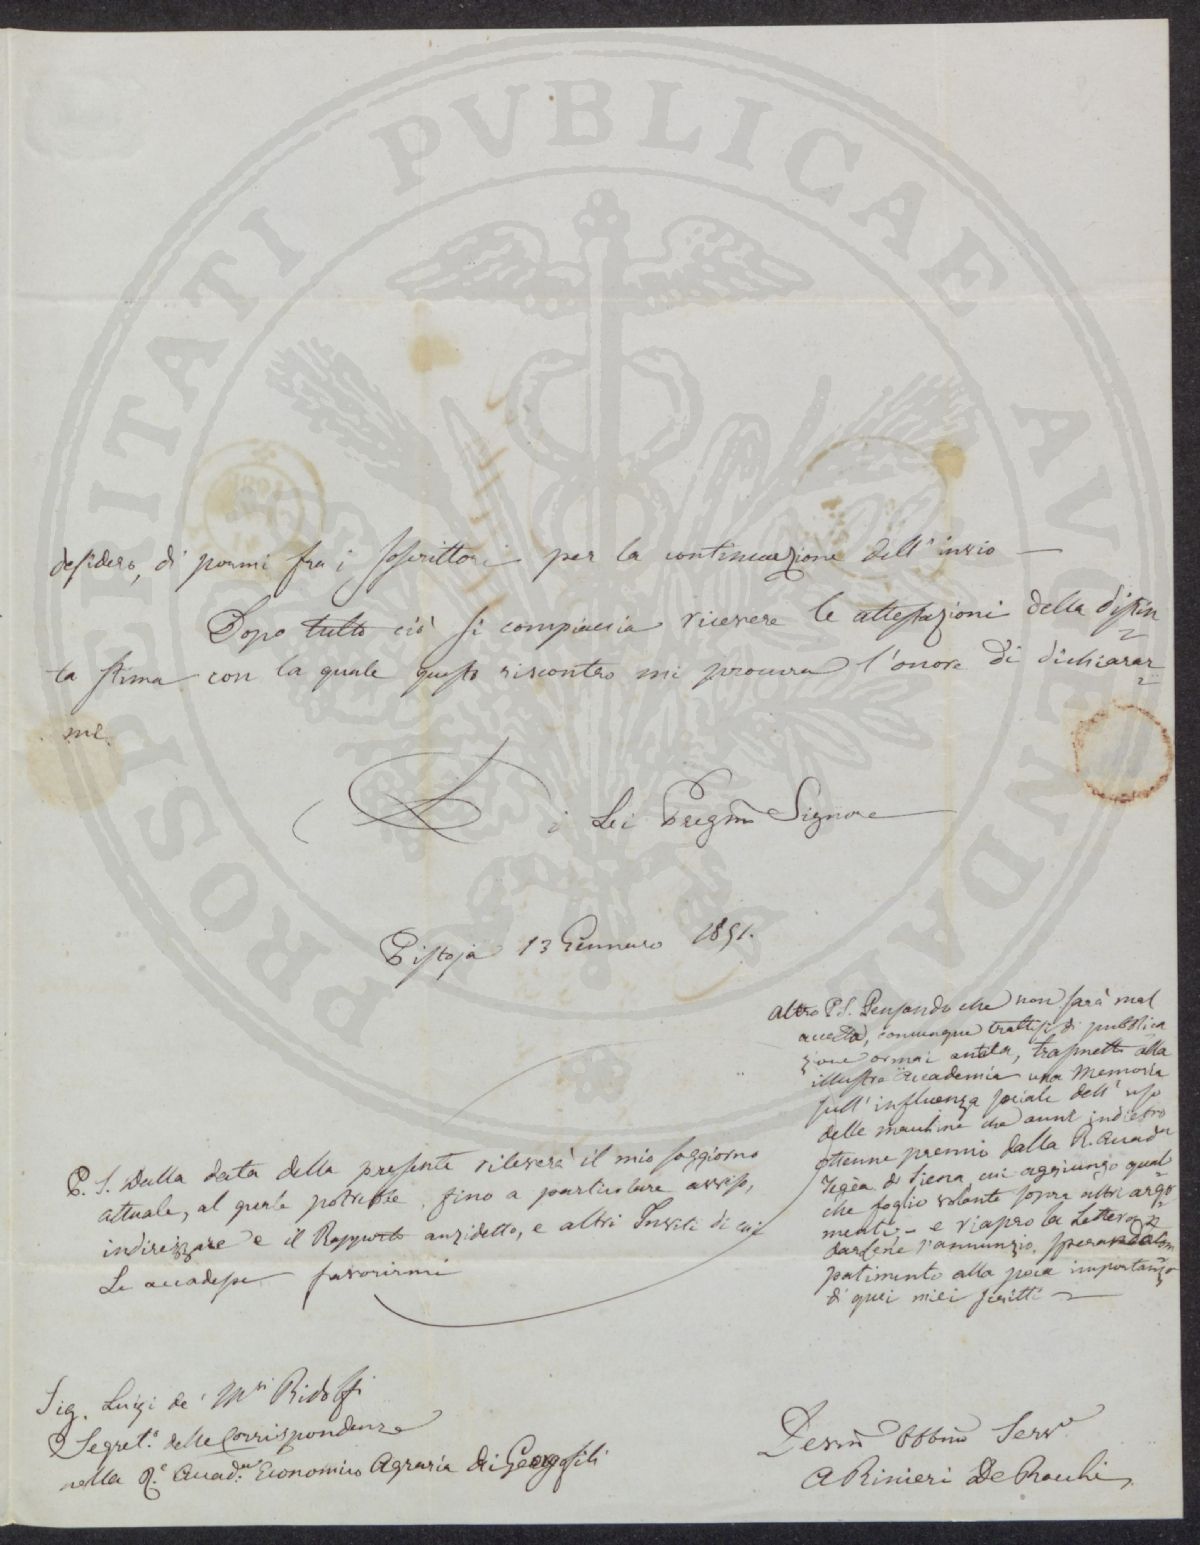 PROSPERITATI PVBLICAE AVGENDAE
desidero, di pormi fra i soscrittori per la continuazione dell'invio —
Dopo tutto ciò si compiaccia ricevere le attestazioni della distin
ta stima con la quale questo riscontro mi procura l'onore di dichiarar
mi
Di Lei Pregmo Signore
Pistoja 13 Gennaro 1851.
P. S. Dalla data della presente rileverà il mio soggiorno
attuale, al quale potrebbe, fino a particolare avviso,
indirizzare e il Rapporto anzidetto, e altri Inviti di cui
Le accadesse favorirmi
altro P.S. Pensando che non sarà mal
accetta, comunque trattisi di pubblica
zione ormai antica, trasmetto alla
illustre Accademia una Memoria
sull'influenza sociale dell'uso
delle macchine che anni indietro
ottenne premio dalla R. Accad
di Siena, cui aggiungo qual
che foglio volante sopra altri argo
menti; – e riapro la Lettera
darlene l'annunzio, sperando com
patimento alla poca importanza
di quei miei scritti —
Sig. Luigi de' Msi Ridolfi
Segreto. delle Corrispondenze
nella Re. Accad. Economico Agraria dei Georgofili
Devmo Obbmo Servo
A Rinieri De Rocchi